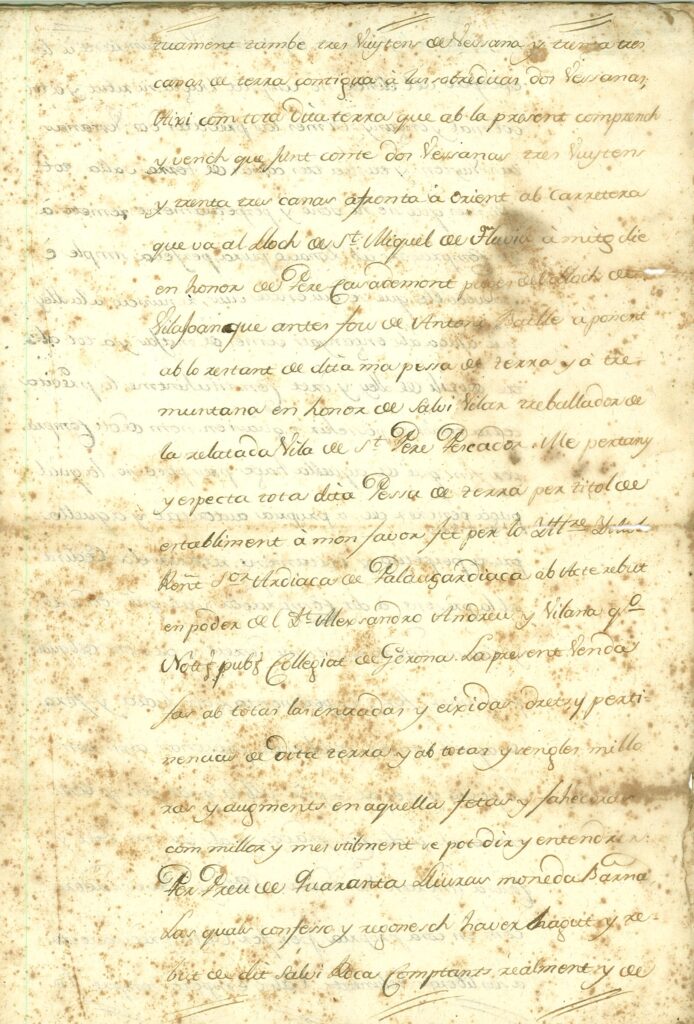 tuament tambe tres Vuytens de Vessana y trenta tres
canas de terra contigua à las sobreditas dos Vessanas,
Axi com tota dita terra que ab la present comprench
y vench que junt conte dos Vessanas tres Vuytens
y trenta tres canas afronta à Orient ab Carretera
que va al Lloch de St. Miquel de Fluvia à mitg die
en honor de Pere Casademont pages del Lloch de
Vilajoan que antes fou de Antoni Batlle a ponent
ab lo restant de dita ma pessa de terra y à tre
muntana en honor de Salvi Vilar treballador de
la relatada Vila de St. Pere Pescador. Me pertany
y especta tota dita Pessa de terra per titol de
establiment à mon favor fet per lo Iltre
Reñt Sor Ardiaca de Palau ardiaca ab Acte rebut
en poder del Dt. Alexsandro Andreu y Vilana qo
Nott pub Collegiat de Gerona. La present Venda
fas ab totas las entradas y eixidas drets y perti
nencias de dita terra y ab totas y sengles millo
ras y augments en aquella fetas y fahedoras
com millor y mes utilment se pot dir y entendrer.
Per Preu de Quaranta Lliuras moneda Barña
Las quals confesso y regonesch haver hagut y re-
but de dit Salvi Roca Comptants, realment y de